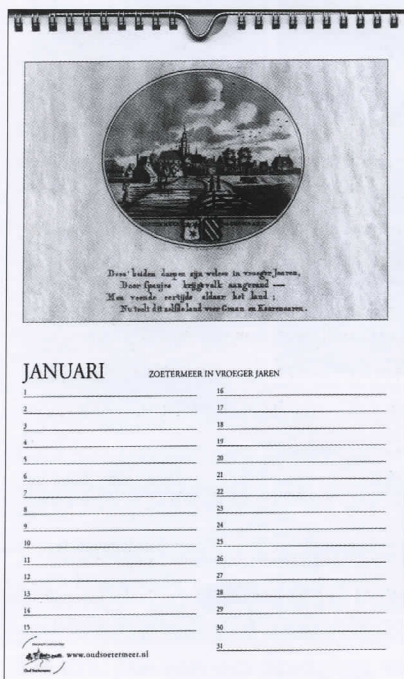 Deez' beiden dorpen zijn weleer in vroeger Jaaren,
Door Spanjes krijgsvolk aangerand —
Men veende eertijds aldaar het land;
Nu teelt dit zelfde land weer Graan en Koorenaaren.
JANUARI
ZOETERMEER IN VROEGER JAREN
1
2
3
4
5
6
7
8
9
10
11
12
13
14
15
16
17
18
19
20
21
22
23
24
25
26
27
28
29
30
31
www.oudsoetermeer.nl
Oud Soetermeer